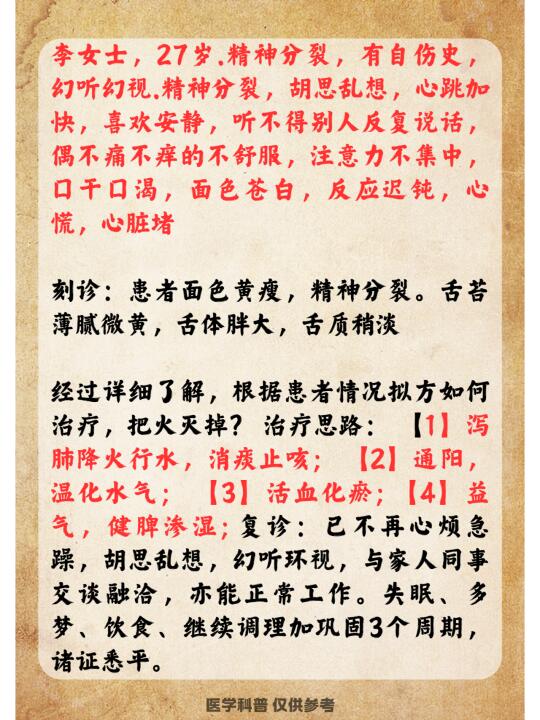 李女士，27岁.精神分裂，有自伤史，
幻听幻视.精神分裂，胡思乱想，心跳加
快，喜欢安静，听不得别人反复说话，
偶不痛不痒的不舒服，注意力不集中，
口干口渴，面色苍白，反应迟钝，心
慌，心脏堵
刻诊：患者面色黄瘦，精神分裂。舌苔
薄腻微黄，舌体胖大，舌质稍淡
经过详细了解，根据患者情况拟方如何
治疗，把火灭掉？治疗思路：【1】泻
肺降火行水，消痰止咳；【2】通阳，
温化水气；【3】活血化瘀；【4】益
气，健脾渗湿；复诊：已不再心烦急
躁，胡思乱想，幻听环视，与家人同事
交谈融洽，亦能正常工作。失眠、多
梦、饮食、继续调理加巩固3个周期，
诸证悉平。
医学科普 仅供参考